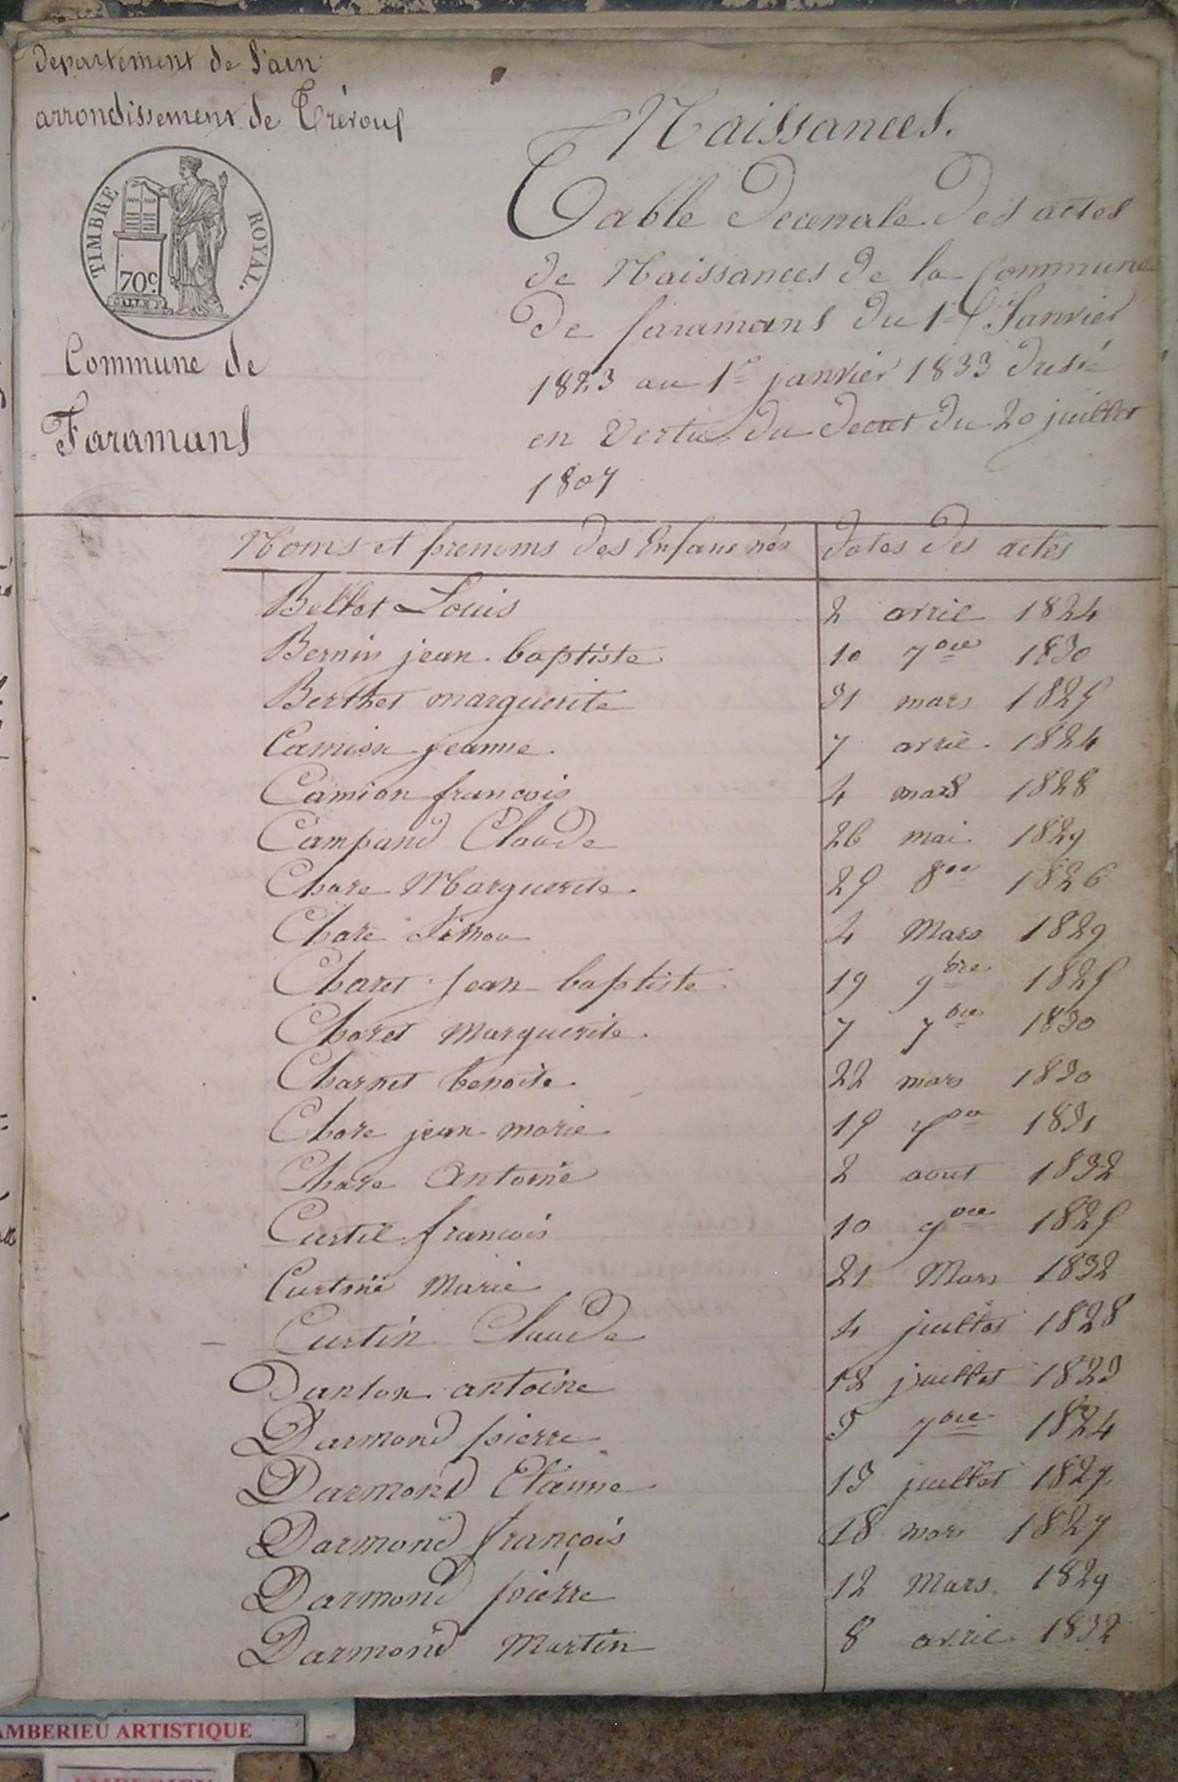 Departement de l'ain
arrondissement de Trévoux
TIMBRE ROYAL.
70c.
Commune de
Faramans
Naissances.
Table Decenale Des actes
de Naissances de la Commune
De faramans du 1er Janvier
1823 au 1er janvier 1833
en Vertu du Decret du 20 juillet
1807
Noms et prenoms Des Enfans nés Dates Des actes
Bellet Louis 2 avril 1824
Bernin jean baptiste 10 7bre 1830
Berthet marguerite 31 mars 1825
Camion jeanne. 7 avril 1824
Camion francois 4 mars 1828
Campand Claude 26 mai 1829
Chare Marguerite. 25 8bre 1826
Chare Simon 4 Mars 1829
Charet jean baptiste 19 9bre 1825
Charet Marguerite. 7 7bre 1830
Charnet benoite. 22 mars 1830
Chare jean marie 15 1831
Chare Antoine 2 aout 1832
Curtil francois 10 9bre 1825
Curtine Marie 21 Mars 1832
Curtin Claude 4 juillet 1828
Danton antoine 12 juillet 1823
Darmond pierre 5 7bre 1824
Darmond Etienne 13 juillet 1827
Darmond françois 18 mars 1827
Darmond pierre 12 Mars 1829
Darmond Martin 8 avril 1832
AMBERIEU ARTISTIQUE
AMBERIEU